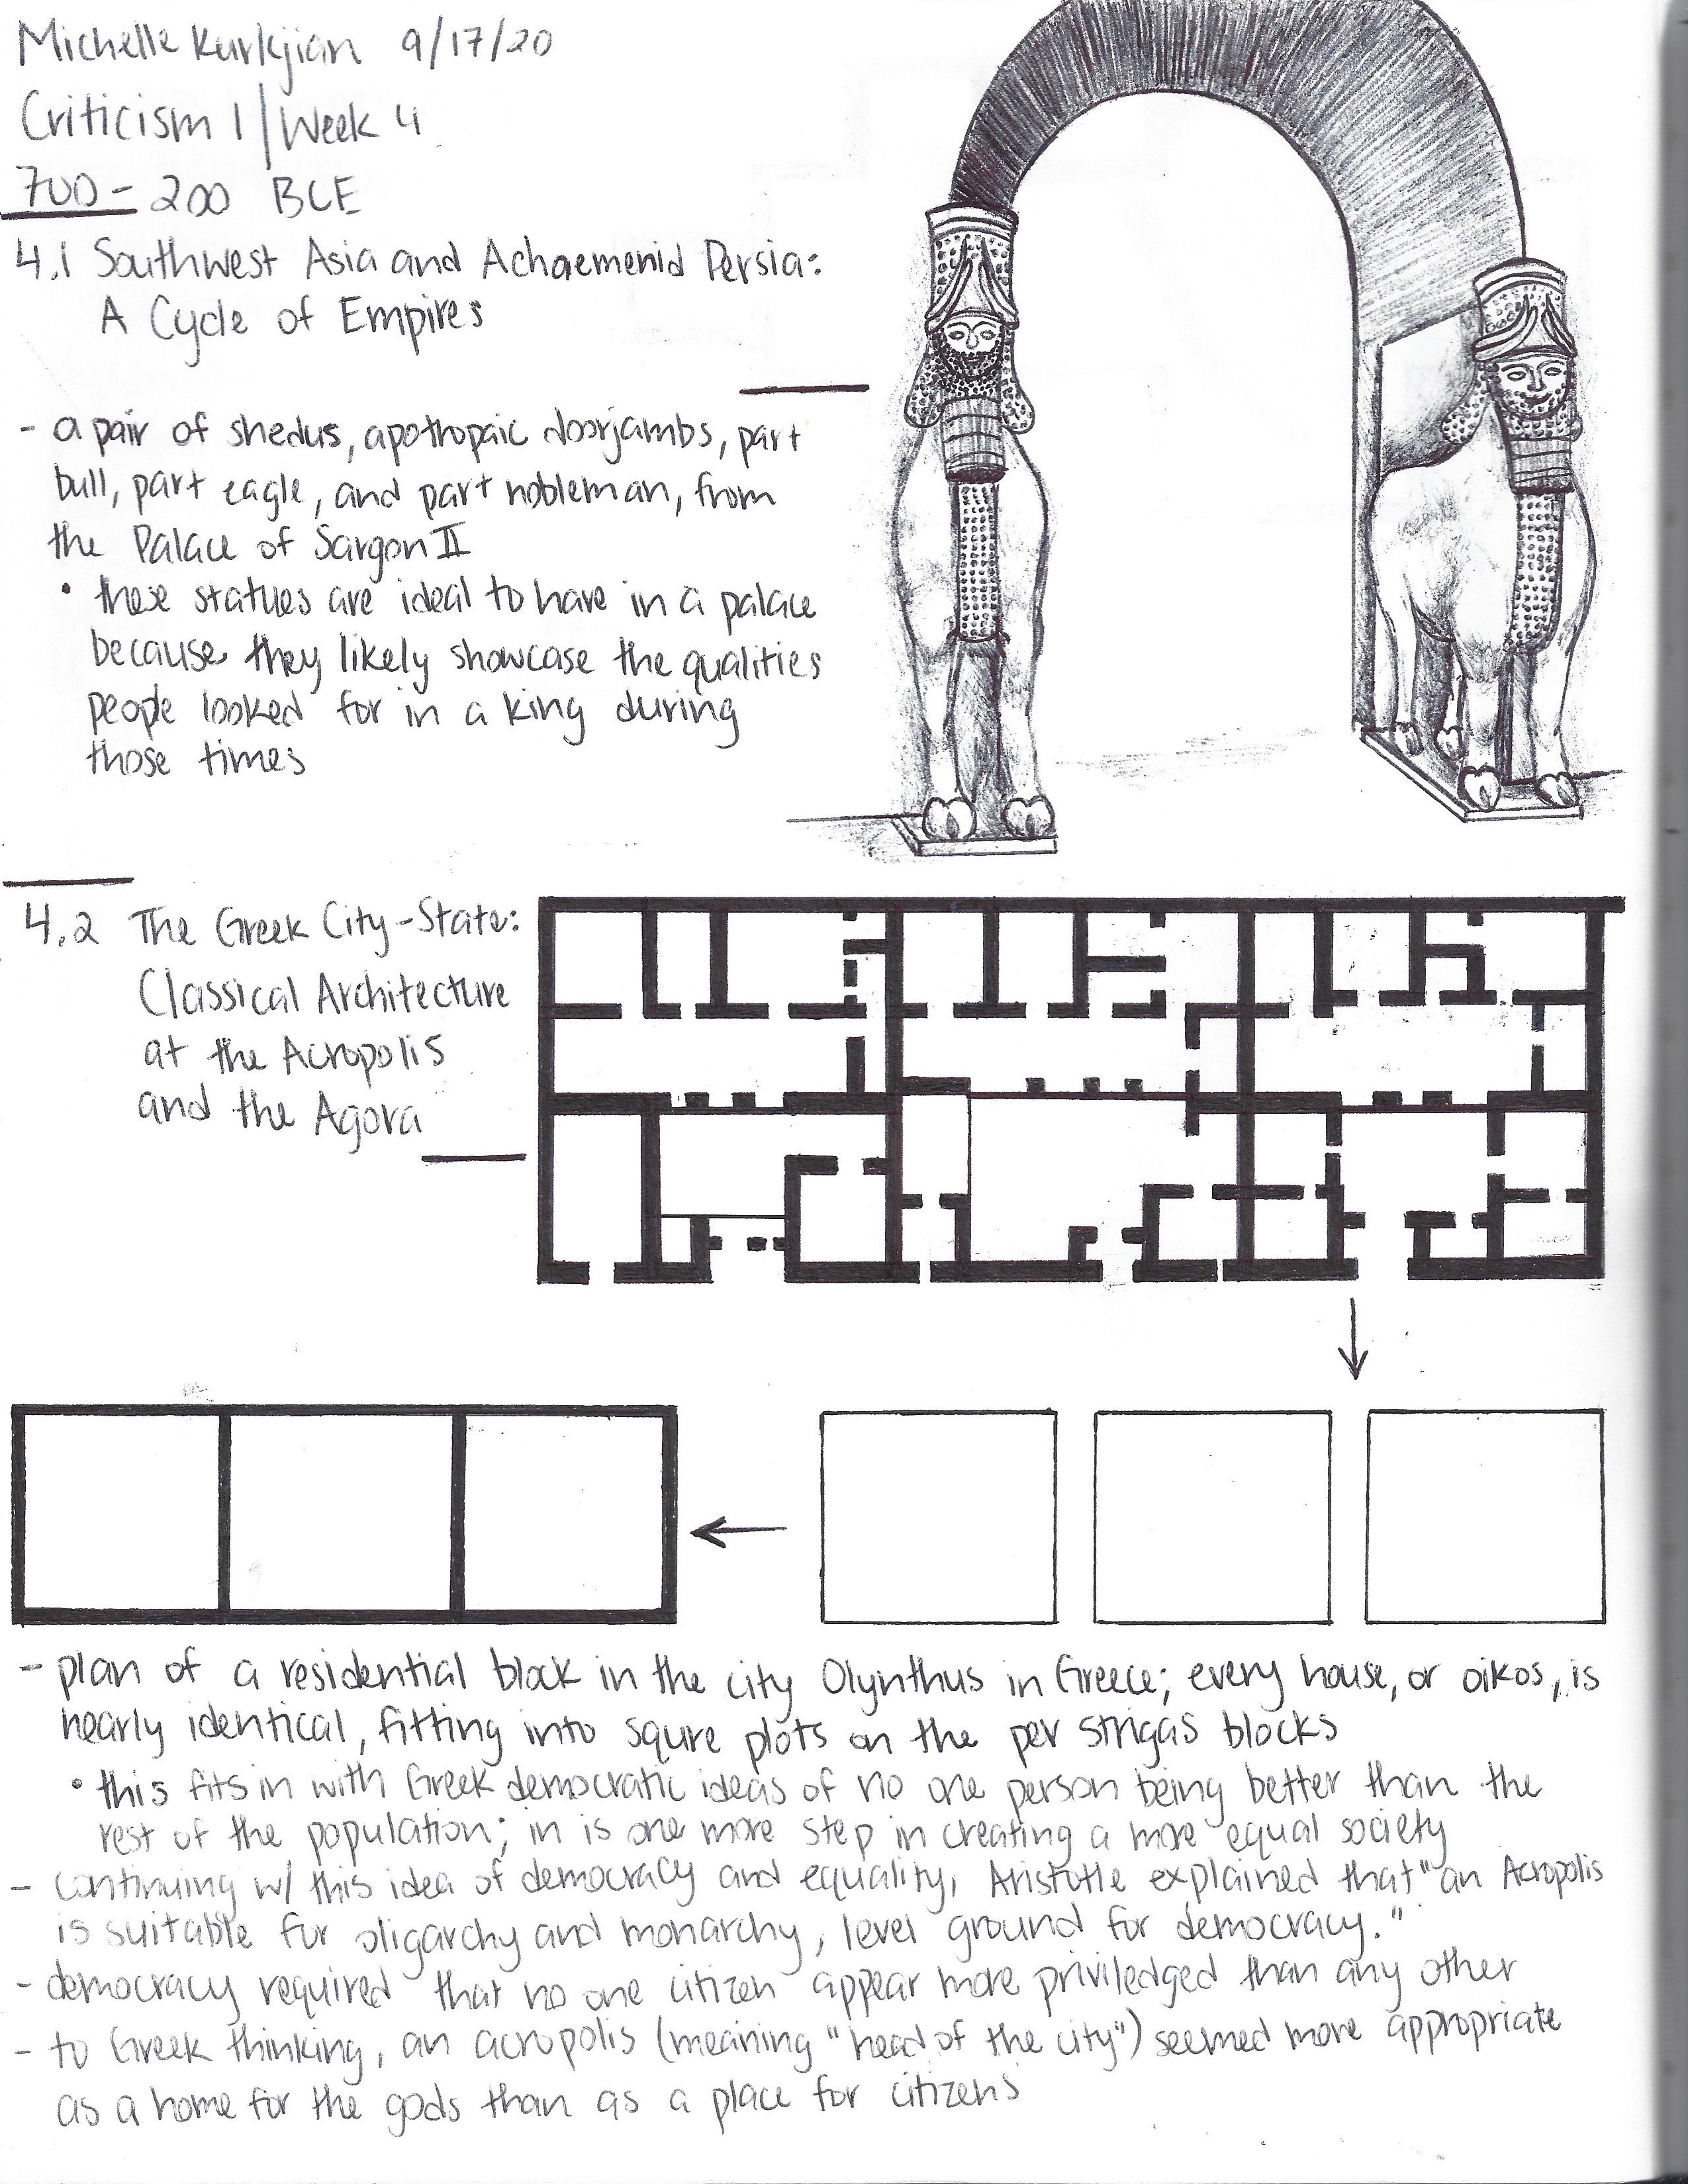 Michelle Kurkjian 9/17/20
Criticism 1 / Week 4
700 - 200 BCE
4.1 Southwest Asia and Achaemenid Persia:
A Cycle of Empires
- a pair of shedus, apotropaic doorjambs, part
bull, part eagle, and part nobleman, from
the Palace of Sargon II
• these statues are ideal to have in a palace
because they likely showcase the qualities
people looked for in a king during
those times
4.2 The Greek City-State:
Classical Architecture
at the Acropolis
and the Agora
- plan of a residential block in the city Olynthus in Greece; every house, or oikos, is
nearly identical, fitting into squre plots on the per strigas blocks
• this fits in with Greek democratic ideas of no one person being better than the
rest of the population; in is one more step in creating a more equal society
- continuing w/ this idea of democracy and equality, Aristotle explained that "an Acropolis
is suitable for oligarchy and monarchy, level ground for democracy."
- democracy required that no one citizen appear more priviledged than any other
- to Greek thinking, an acropolis (meaning "head of the city") seemed more appropriate
as a home for the gods than as a place for citizens